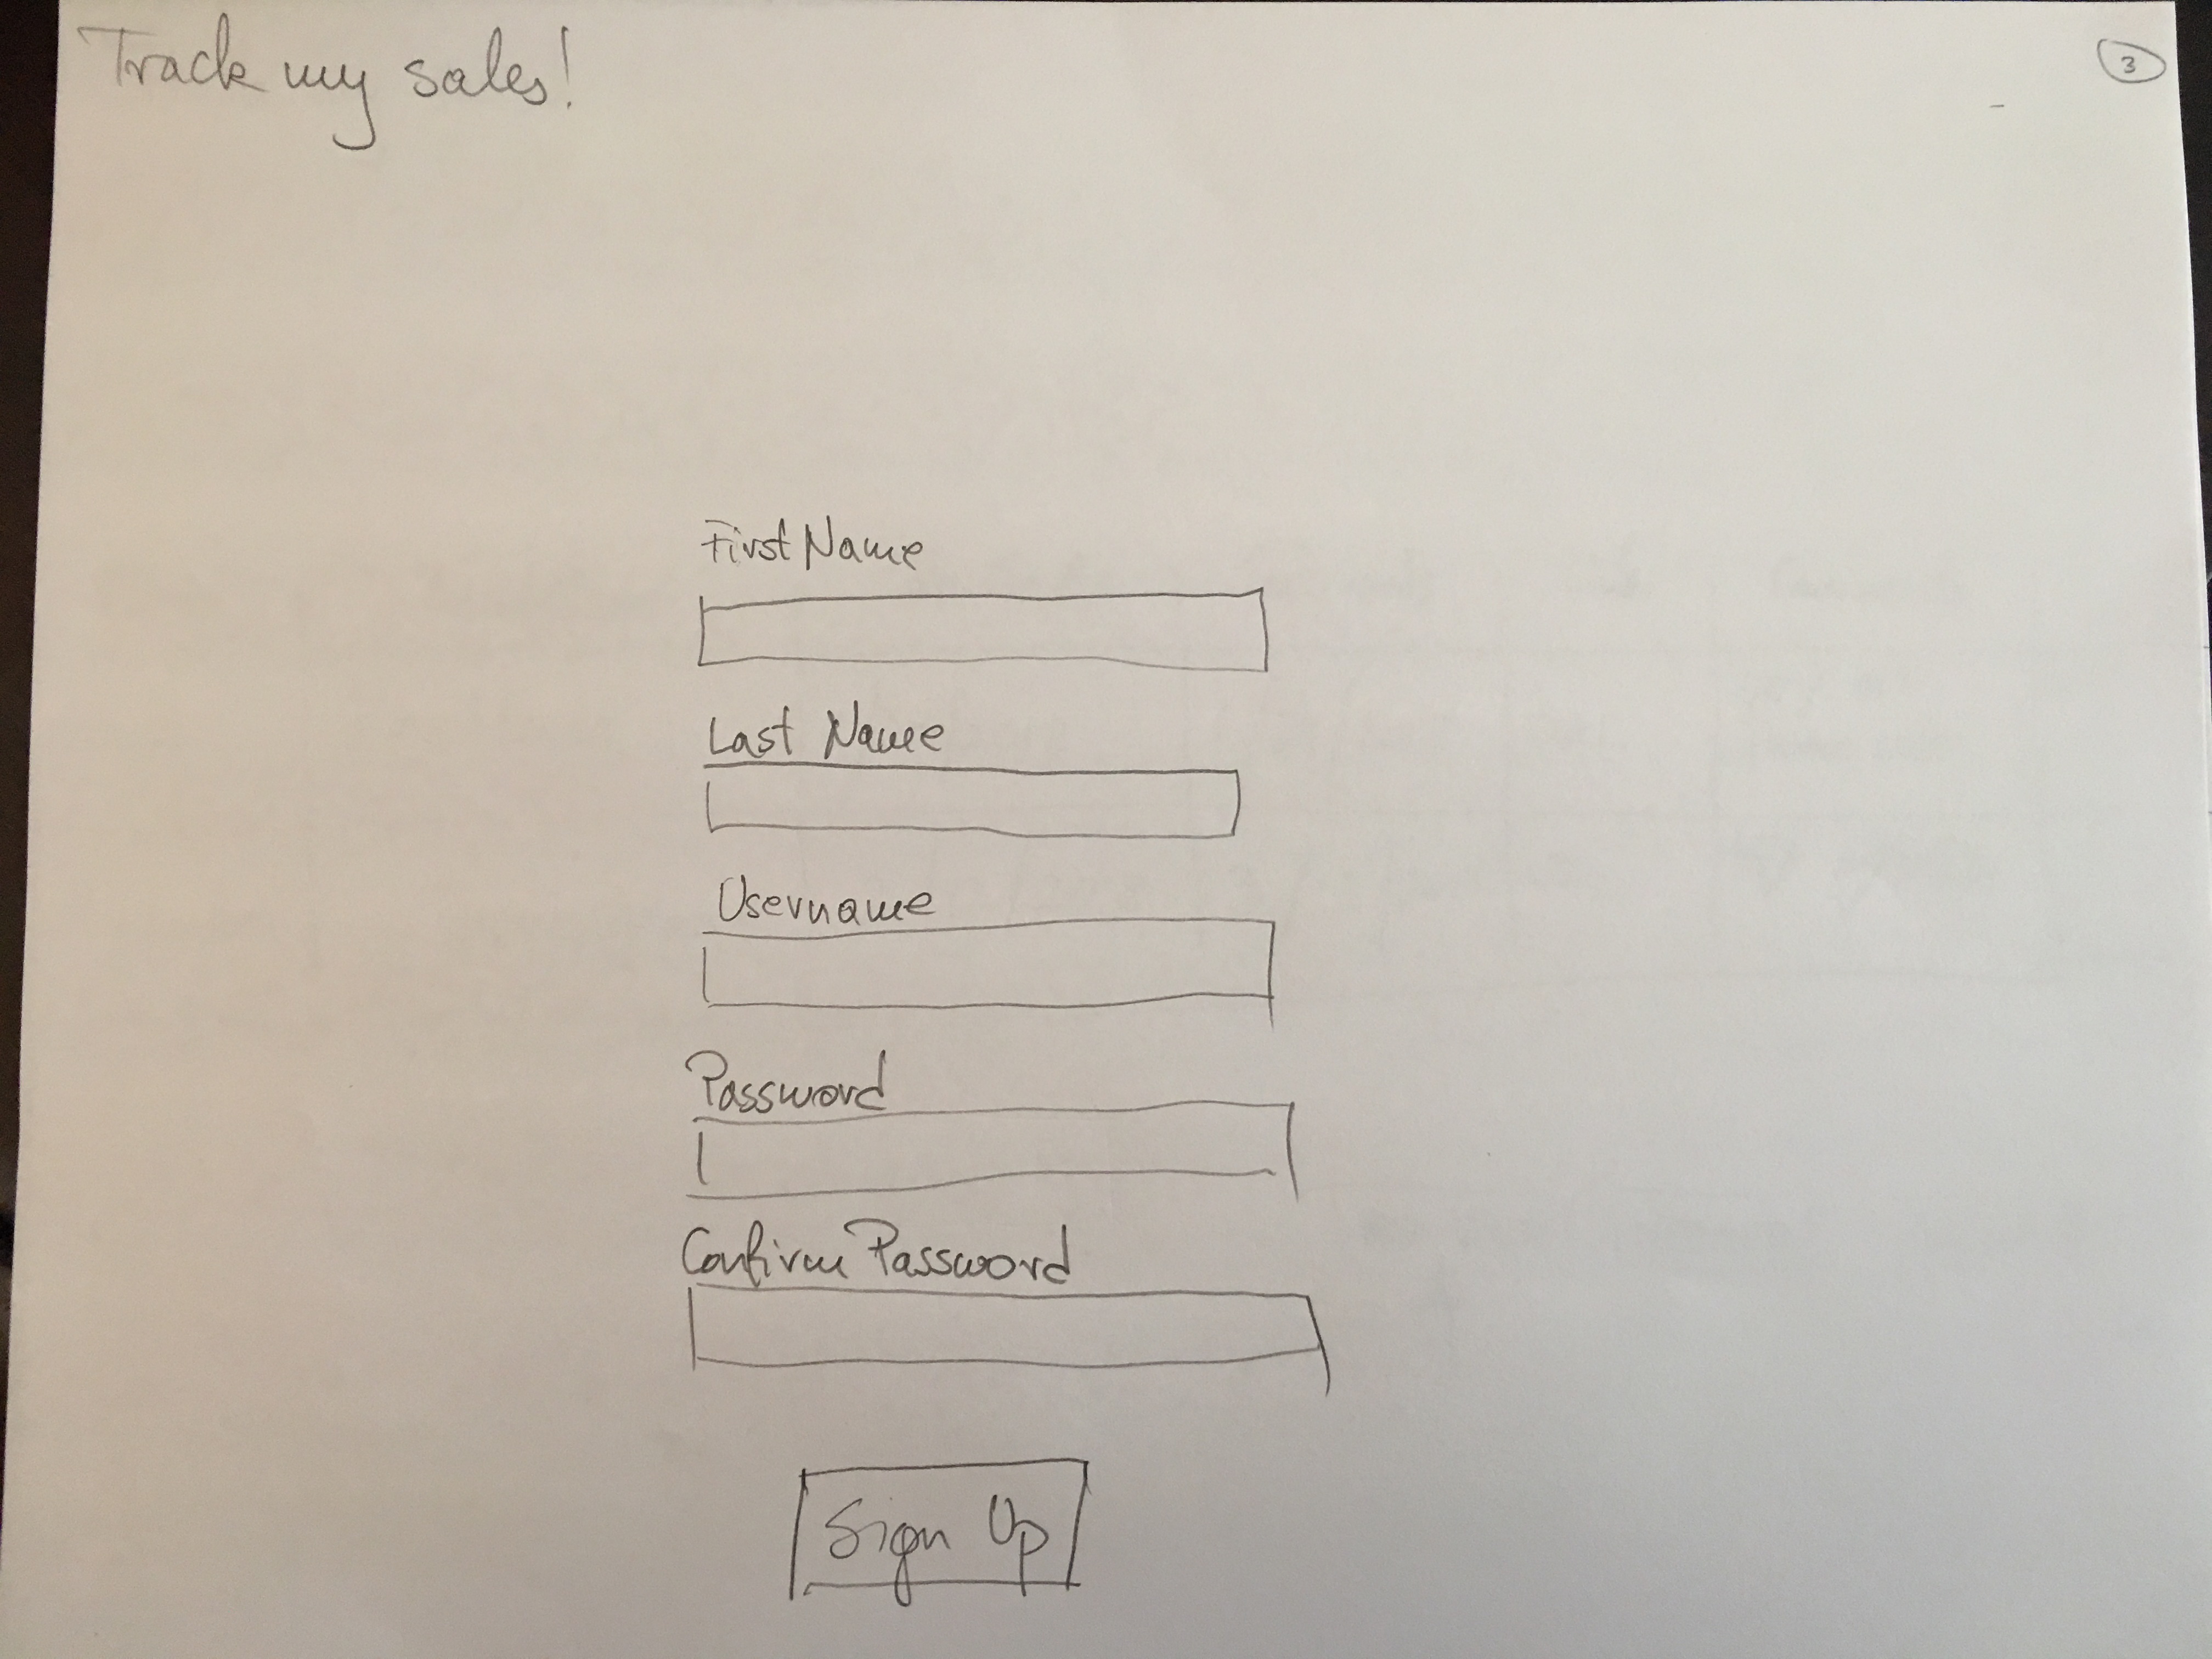 Track my sales!
3
First Name
Last Name
Username
Password
Confirm Password
Sign Up